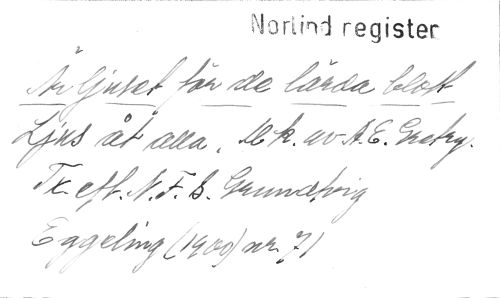 Norlind register
Är ljuset för de lärda blott
Ljus åt alla. Mk. av A. E. Gretry.
Tx. eft. N. F. S. Grundtvig
Eggeling (1900) nr. 71